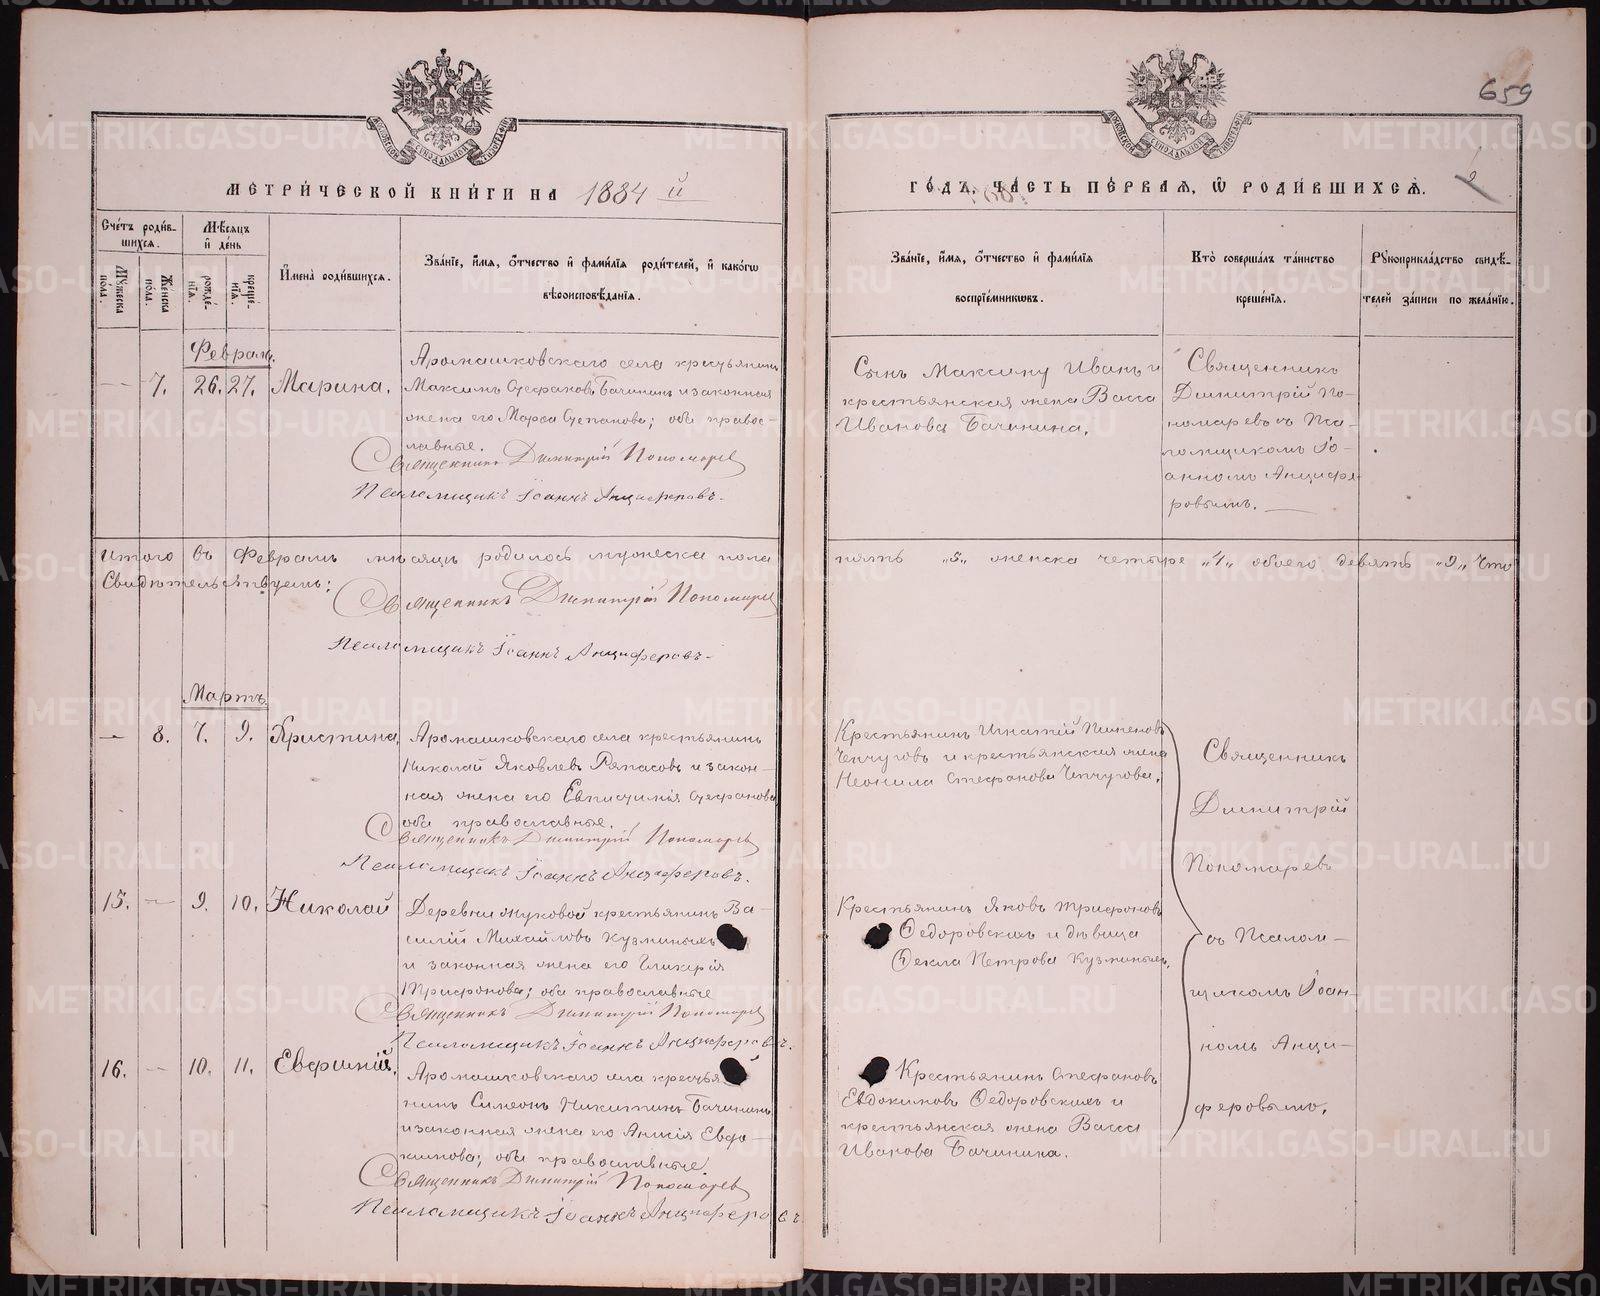 659
МЕТРИЧЕСКОЙ КНИГИ НА 1884 й
ГОДЪ, ЧАСТЬ ПЕРВАЯ, Ѡ РОДИВШИХСЯ.
2
Счетъ родив-
шихся.
Мѣсяцъ
и день
Мужеска пола.
Женска пола.
рожде-
нія.
креще-
нія.
Имена родившихся.
Званіе, имя, отчество и фамилія родителей, и какогѡ
вѣроисповѣданія.
Званіе, имя, отчество и фамилія
воспріемниковъ.
Кто совершалъ таинство
крещенія.
Рукоприкладство свидѣ-
телей записи по желанію.
Февраль.
— 7. 26. 27. Марина.
Аромашковскаго села крестьянинъ
Максимъ Стефановъ Бачининъ и законная
жена его Марѳа Степанова; оба правос-
лавные.
Священникъ Димитрій Пономаревъ
Псаломщикъ Іоаннъ Анциферовъ.
Сынъ Максиму Иванъ и
крестьянская жена Васса
Иванова Бачинина.
Священникъ
Димитрій По-
номаревъ съ Пса-
ломщикомъ Іо-
анномъ Анцифе-
ровымъ.
Итого въ Февралѣ мѣсяцѣ родилось мужеска пола
пять „5„ женска четыре „4„ обоего девять „9„ Что
Свидѣтельствуемъ:
Священникъ Димитрій Пономаревъ
Псаломщикъ Іоаннъ Анциферовъ.
Мартъ.
— 8. 7. 9. Христина,
Аромашковскаго села крестьянинъ
Николай Яковлевъ Ряпасовъ и закон-
ная жена его Стефанова
оба православные.
Священникъ Димитрій Пономаревъ
Псаломщикъ Іоаннъ Анциферовъ.
Крестьянинъ Игнатій Пименовъ
Чепчуговъ и крестьянская жена
Неонила Стефанова Чепчугова.
Священникъ
Димитрій
Пономаревъ
съ Псалом-
щикомъ Іоан-
номъ Анци-
феровымъ.
15. — 9. 10. Николай
Деревни Жуковой крестьянинъ Ва-
силій Михайловъ Кузминыхъ
и законная жена его Гликерія
Трифонова; оба православные
Священникъ Димитрій Пономаревъ
Псаломщикъ Іоаннъ Анциферовъ.
Крестьянинъ Яковъ Трифоновъ
Ѳедоровскихъ и дѣвица
Ѳекла Петрова Кузминыхъ.
16. — 10. 11. Евфимій,
Аромашковскаго села крестья
нинъ Симеонъ Никитинъ Бачининъ
и законная жена его Анисія Евдо-
кимова; оба православные.
Священникъ Димитрій Пономаревъ
Псаломщикъ Іоаннъ Анциферовъ
Крестьянинъ Стефановъ
Евдокимовъ Ѳедоровскихъ и
крестьянская жена Васса
Иванова Бачинина.
METRIKI.GASO-URAL.RU